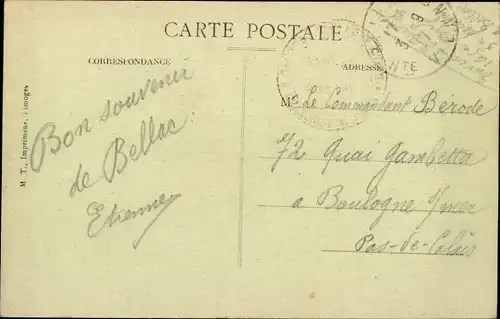 CARTE POSTALE
CORRESPONDANCE
ADRESSE
M. T., Imprimeur, Limoges
Bon souvenir
de Bellac
Etienne
Mr Le Commandant Bérode
72 Quai Gambetta
a Boulogne s/mer
Pas-de-Calais